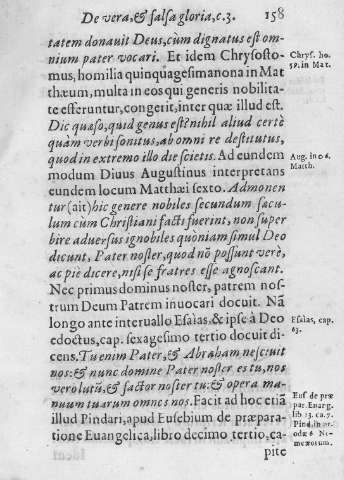 De vera, & falsa gloria, c.3. 158
tatem donauit Deus, cùm dignatus est om-
nium pater vocari. Et idem Chrysosto-
mus, homilia quinquagesimanona in Mat
thæum, multa in eos qui generis nobilita-
te efferuntur, congerit, inter quæ illud est.
Dic quæso, quid genus est? nihil aliud certè
quàm verbi sonitus, ab omni re destitutus,
quod in extremo illo die scietis. Ad eundem
modum Diuus Augustinus interpretans
eundem locum Matthæi sexto. Admonen
tur (ait) hic genere nobiles secundum sæcu-
lum cùm Christiani facti fuerint, non super
bire aduersus ignobiles quoniam simul Deo
dicunt, Pater noster, quod nõ possunt verè,
ac piè dicere, nisi se fratres esse agnoscant.
Nec primus dominus noster, patrem nos-
trum Deum Patrem inuocari docuit. Nã
longo ante interuallo Esaias, & ipse à Deo
edoctus, cap. sexagesimo tertio docuit di-
cens. Tu enim Pater, & Abraham nesciuit
nos: & nunc domine Pater noster es tu, nos
vero lutũ, & factor noster tu: & opera ma-
nuum tuarum omnes nos. Facit ad hoc etiã
illud Pindari, apud Eusebium de præpara-
tione Euangelica, libro decimo tertio, ca-
pite
Chrys. ho.
59. in Mat.
Aug. in c 6.
Matth.
Esaias, cap.
63.
Eus de præ
par. Euang.
lib 13. ca. 7.
Pind. in
odæ 6 Ne-
mæorum.